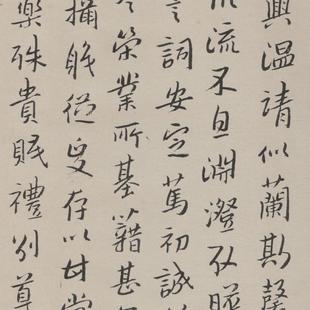 興溫清似蘭斯馨
川流不息淵澄取映
言詞安定篤初誠
榮業所基籍甚
攝職從政存以甘棠
樂殊貴賤禮別尊